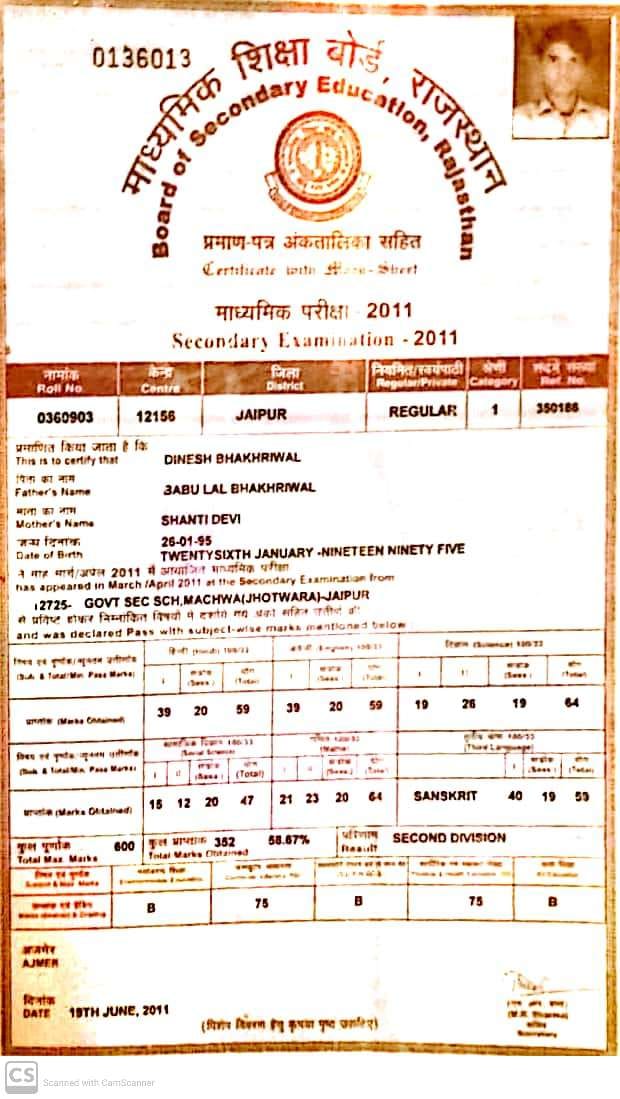 0136013
माध्यमिक शिक्षा बोर्ड, राजस्थान
Board of Secondary Education, Rajasthan
प्रमाण-पत्र अंकतालिका सहित
Certificate with Mark-Sheet
माध्यमिक परीक्षा - 2011
Secondary Examination - 2011
नामांक केन्द्र जिला नियमित/स्वयंपाठी श्रेणी
Roll No. Centre District Regular/Private Category Ref. No.
0360903 12156 JAIPUR REGULAR 1 350186
प्रमाणित किया जाता है कि
This is to certify that DINESH BHAKHRIWAL
पिता का नाम
Father's Name BABU LAL BHAKHRIWAL
माता का नाम
Mother's Name SHANTI DEVI
जन्म दिनांक 26-01-95
Date of Birth TWENTYSIXTH JANUARY -NINETEEN NINETY FIVE
ने माह मार्च/अप्रेल 2011 में आयोजित माध्यमिक परीक्षा
has appeared in March /April 2011 at the Secondary Examination from
12725- GOVT SEC SCH,MACHWA(JHOTWARA)-JAIPUR
से प्रविष्ट होकर निम्नांकित विषयों में दर्शाये गये अंको सहित उत्तीर्ण की
and was declared Pass with subject-wise marks mentioned below
हिन्दी (Hindi) 100/33 (English) 100/33 विज्ञान (Science) 100/33
(Sub. & Total/Min. Pass Marks) I (Sess.) (Total) I (Sess.) (Total) I II (Sess.) (Total)
प्राप्तांक (Marks Obtained) 39 20 59 39 20 59 19 26 19 64
सामाजिक विज्ञान 100/33 गणित 100/33 तृतीय भाषा 100/33
(Social Science) (Maths) (Third Language)
(Sub. & Total/Min. Pass Marks) I II (Sess.) (Total) I II (Sess.) (Total) I (Sess.) (Total)
प्राप्तांक (Marks Obtained) 15 12 20 47 21 23 20 64 SANSKRIT 40 19 59
कुल पूर्णांक 600 कुल प्राप्तांक 352 58.67% परिणाम SECOND DIVISION
Total Max. Marks Total Marks Obtained Result
B 75 B 75 B
अजमेर
AJMER
दिनांक
DATE 19TH JUNE, 2011
(विशेष विवरण हेतु कृपया पृष्ठ उलटिए)
(M.R. Sharma)
सचिव
Secretary
CS Scanned with CamScanner